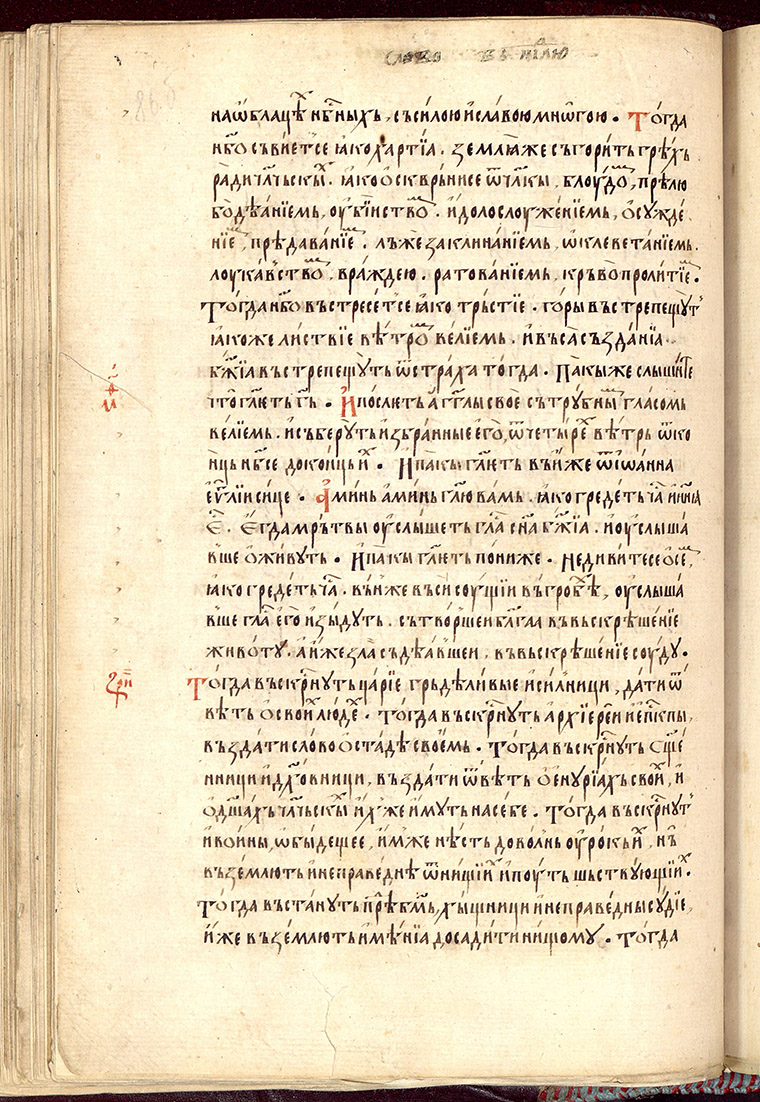 слово въ н҃лю
86 б
на ѡблацѣⷯ нб҃ныхъ, съ силою и славою мнѡгою. Тогда
нб҃о съвиетсе ꙗко хартїа. землꙗже съгорить грѣхъ
ради чл҃чьскыⷯ. ꙗко ѡскврьнисе ѿ чл҃кы, блоудоⷨ, прѣлю
бодѣанїемь, оубїиствоⷨ. идолослоуженїемь, осужде
нїеⷨ, прѣдаванїеⷨ. лъже заклинанїемь, ѡклеветанїемь.
лоукавствоⷨ, враждею. ратованїемь, кръвопролитїеⷨ.
Тогда нб҃о въстресетсе ꙗко трьстїе. горы въстрепещꙋт'
ꙗкоже листвїе вѣтроⷨ велїемь. и въса създанїа
бж҃їа въстрепещꙋть ѿ страха тогда. Пакыже слышите
что гл҃еть гь҃. И послеть агг҃лы свое съ трꙋбныⷨ гласомь
велїемь. и съберꙋть избранные его, ѿ четыреⷯ вѣтрь ѿ ко
нць нб҃се до конць иⷯ. И пакы гл҃еть въ иже ѿ іѡанна
еѵ҃лїи сице. аминь аминь гл҃ю вамь. ꙗко гредеть чаⷭ и нн҃ꙗ
еⷭ҇. Егда мрътвы оуслышеть глаⷭ сн҃а бж҃їа. и оуслыша
вше оживуть. И пакы гл҃еть пониже. Не дивитесе о сеⷨ,
ꙗко гредеть чаⷭ. въ ниже въси соущїи въ гробѣⷯ, оуслыша
вше глаⷭ его изыдуть. сътворшеи бл҃гаа въ въскрѣшенїе
животꙋ. а иже зла съдѣавшеи, въ въскрѣшенїе соудꙋ.
Тогда въскрⷭ҇нуть царїе грьделивые и силници, дати ѿ
вѣть о своиⷯ людеⷯ. Тогда въскрⷭ҇нуть архїереи и епⷭ҇кпы,
въздати слово о стадѣ своемь. Тогда въскрⷭ҇нуть сщ҃е
нници и дх҃овници, въздати ѿвѣть о енꙋрїахь своиⷯ, и
о дш҃ахъ чл҃чьскыⷯ ихже имуть на себе. Тогда въскрⷭ҇нут'
и воины, ѡбыдещее, имже нѣсть доволнь оурокь иⷯ, нъ
въземлють и неправеднѣ ѿ нищїиⷯ и поуть шьствꙋющїиⷯ.
Тогда въстануть прⷣѣ бм҃ь, хыщници и неправедные сꙋдїе,
иже въземлють имѣнїа досадити нищомꙋ. Тогда